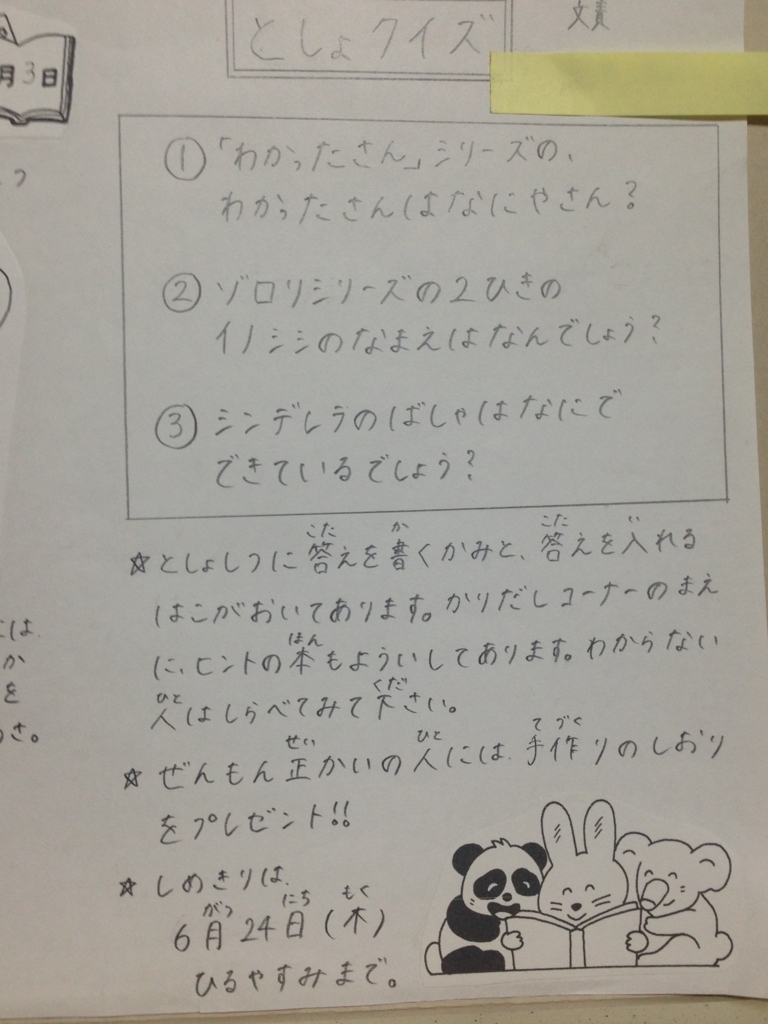 としょクイズ
文責
月3日
①「わかったさん」シリーズの、
わかったさんはなにやさん？
②ゾロリシリーズの2ひきの
イノシシのなまえはなんでしょう？
③シンデレラのばしゃはなにで
できているでしょう？
☆としょしつに答えを書くかみと、答えを入れる
はこがおいてあります。かりだしコーナーのまえ
に、ヒントの本もよういしてあります。わからない
人はしらべてみて下さい。
☆ぜんもん正かいの人には、手作りのしおり
をプレゼント!!
☆しめきりは、
6月24日(木)
ひるやすみまで。